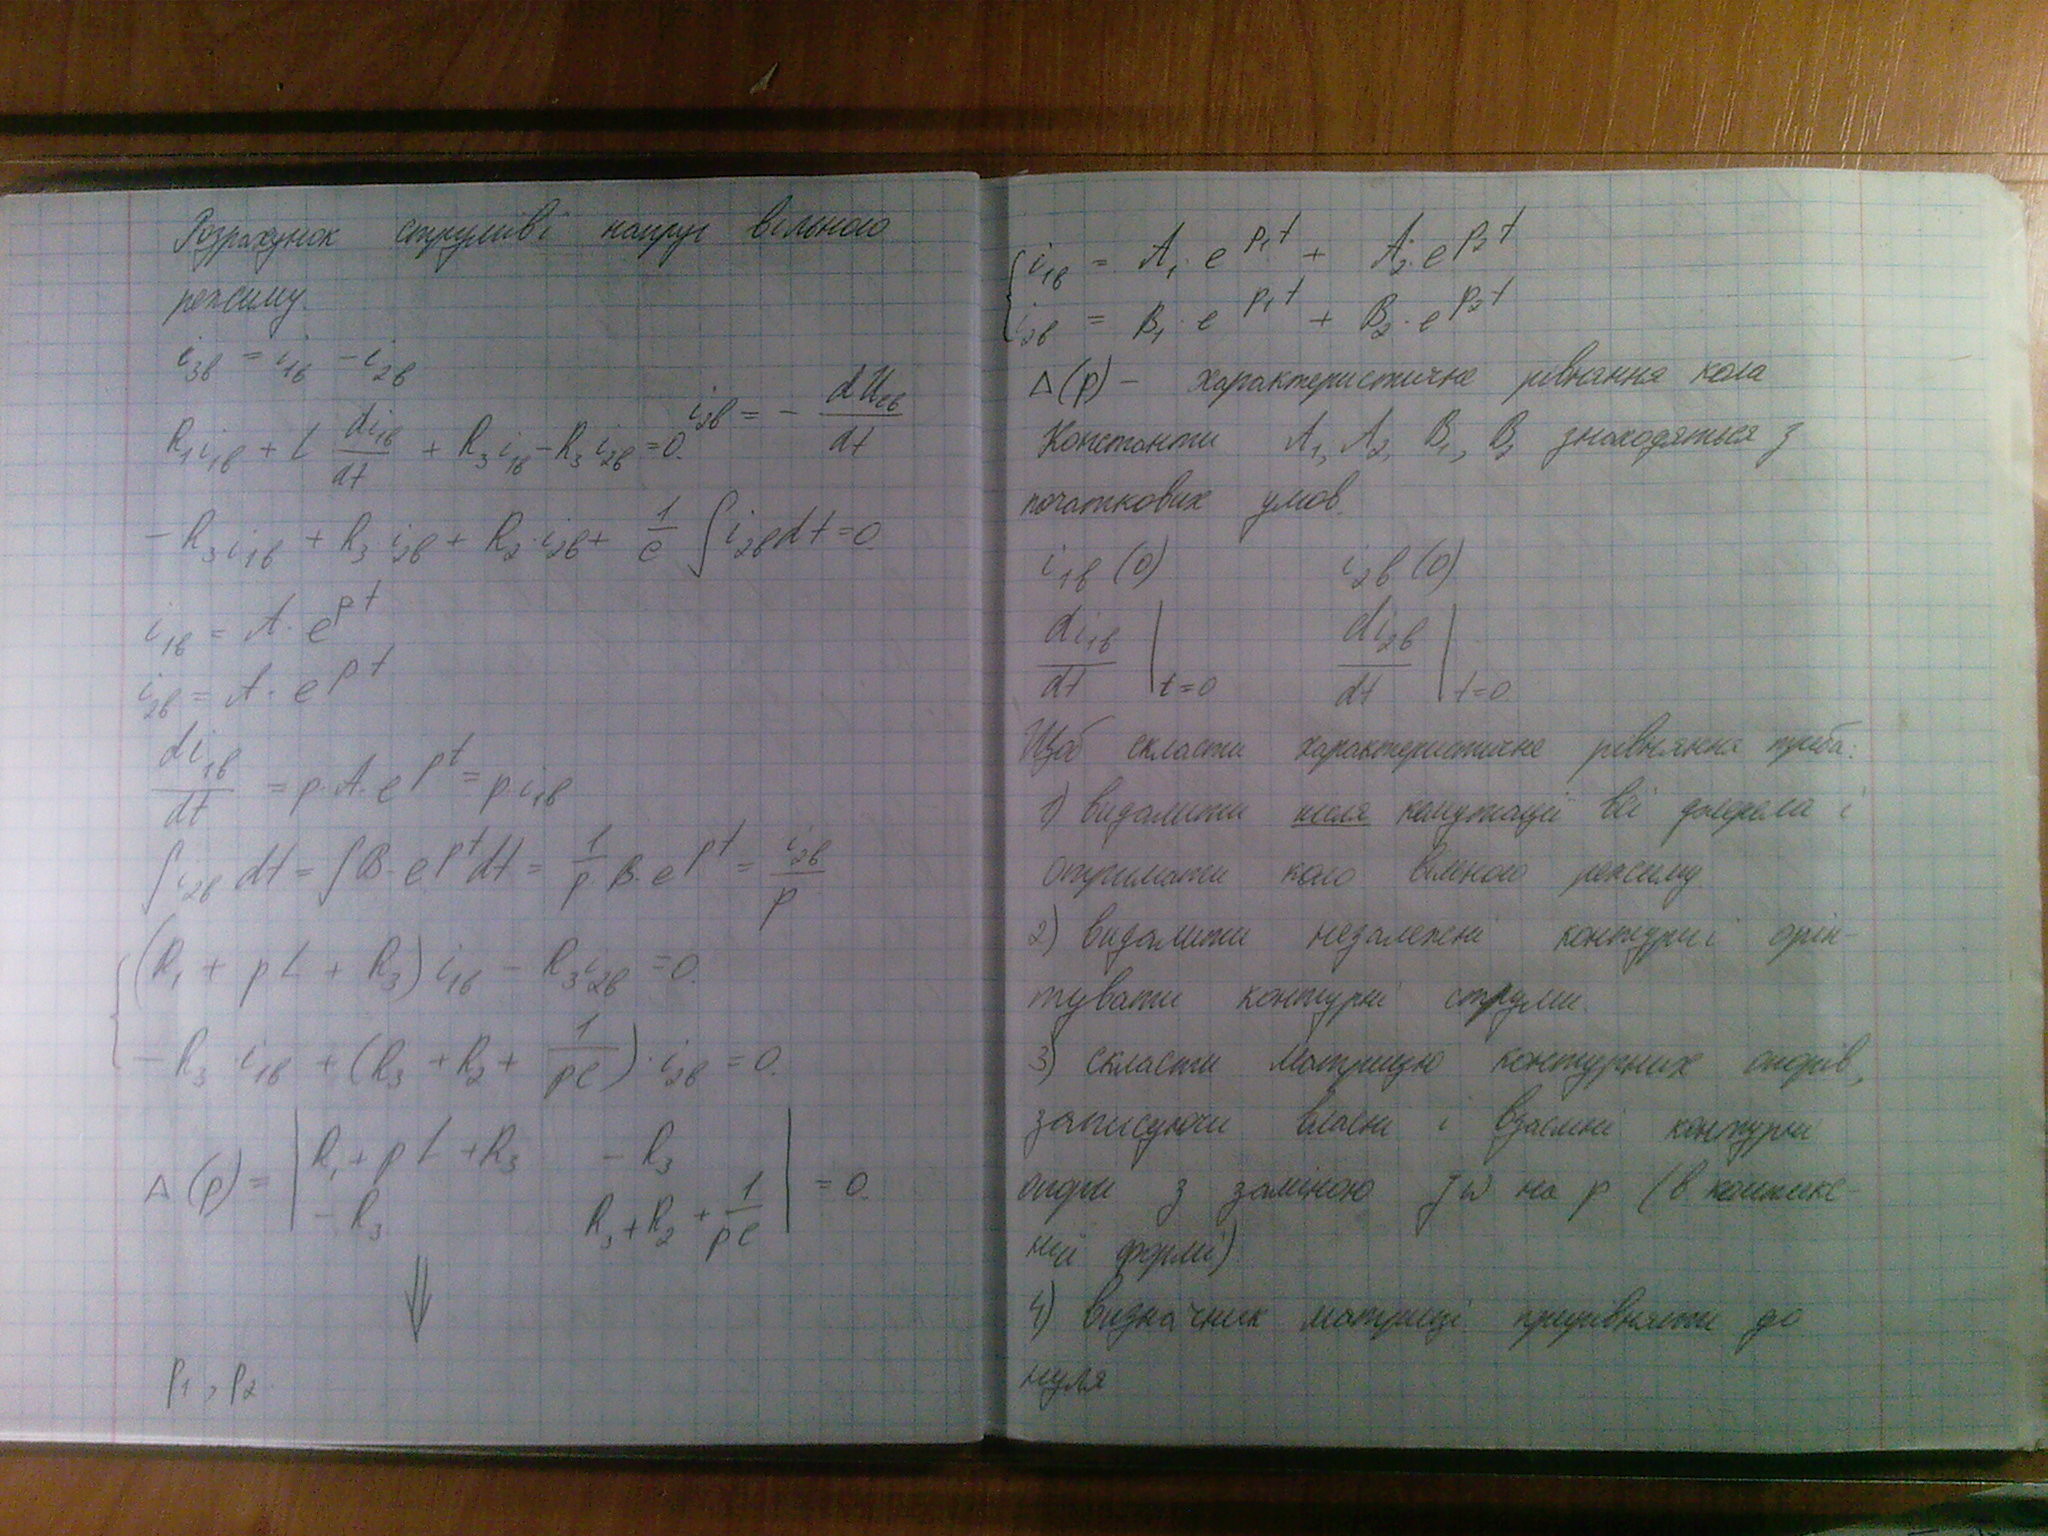 Розрахунок струмів і напруг вільного
режиму.
i₃в = i₁в − i₂в
R₁i₁в + L di₁в/dt + R₃i₁в − R₃i₂в = 0. i₂в = − dUcв/dt
− R₃i₁в + R₃·i₂в + R₂·i₂в + 1/c ∫i₂в dt = 0.
i₁в = A·e^pt
i₂в = A·e^pt
di₁в/dt = p·A·e^pt = p·i₁в
∫i₂в dt = ∫B·e^pt dt = 1/p·B·e^pt = i₂в/p
{(R₁ + pL + R₃) i₁в − R₃i₂в = 0.
− R₃·i₁в + (R₃ + R₂ + 1/pc)·i₂в = 0.
Δ(p) = | R₁ + pL + R₃   − R₃ | = 0.
| − R₃   R₃ + R₂ + 1/pc |
⇓
p₁, p₂.
{i₁в = A₁·e^p₁t + A₂·e^p₂t
i₂в = B₁·e^p₁t + B₂·e^p₂t
Δ(p) − характеристичне рівняння кола
Константи A₁, A₂, B₁, B₂ знаходяться з
початкових умов.
i₁в(0)   i₂в(0)
di₁в/dt |t=0   di₂в/dt |t=0
Щоб скласти характеристичне рівняння треба:
1) видалити після комутації всі джерела і
отримати коло вільного режиму.
2) видалити незалежні контури і орієн-
тувати контурні струми.
3) скласти матрицю контурних опорів,
записуючи власні і взаємні контурні
опори з заміною jω на p (в комплекс-
ній формі)
4) визначник матриці прирівняти до
нуля